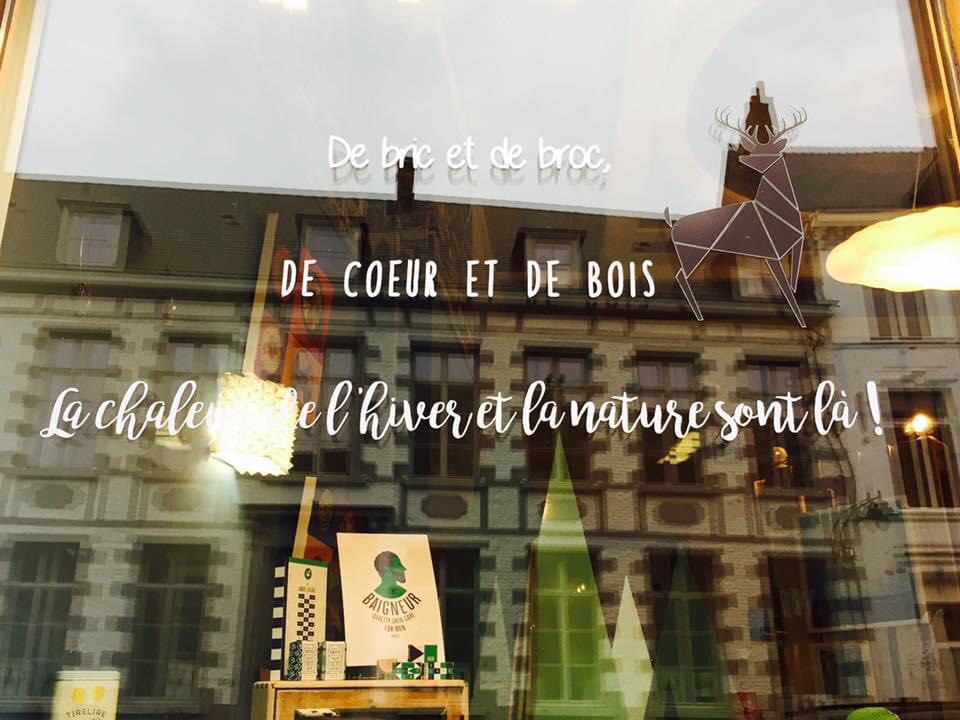 De bric et de broc,
DE COEUR ET DE BOIS
La chaleur de l'hiver et la nature sont là !
BAIGNEUR
QUALITY SKIN CARE
FOR MEN
TIRELIRE